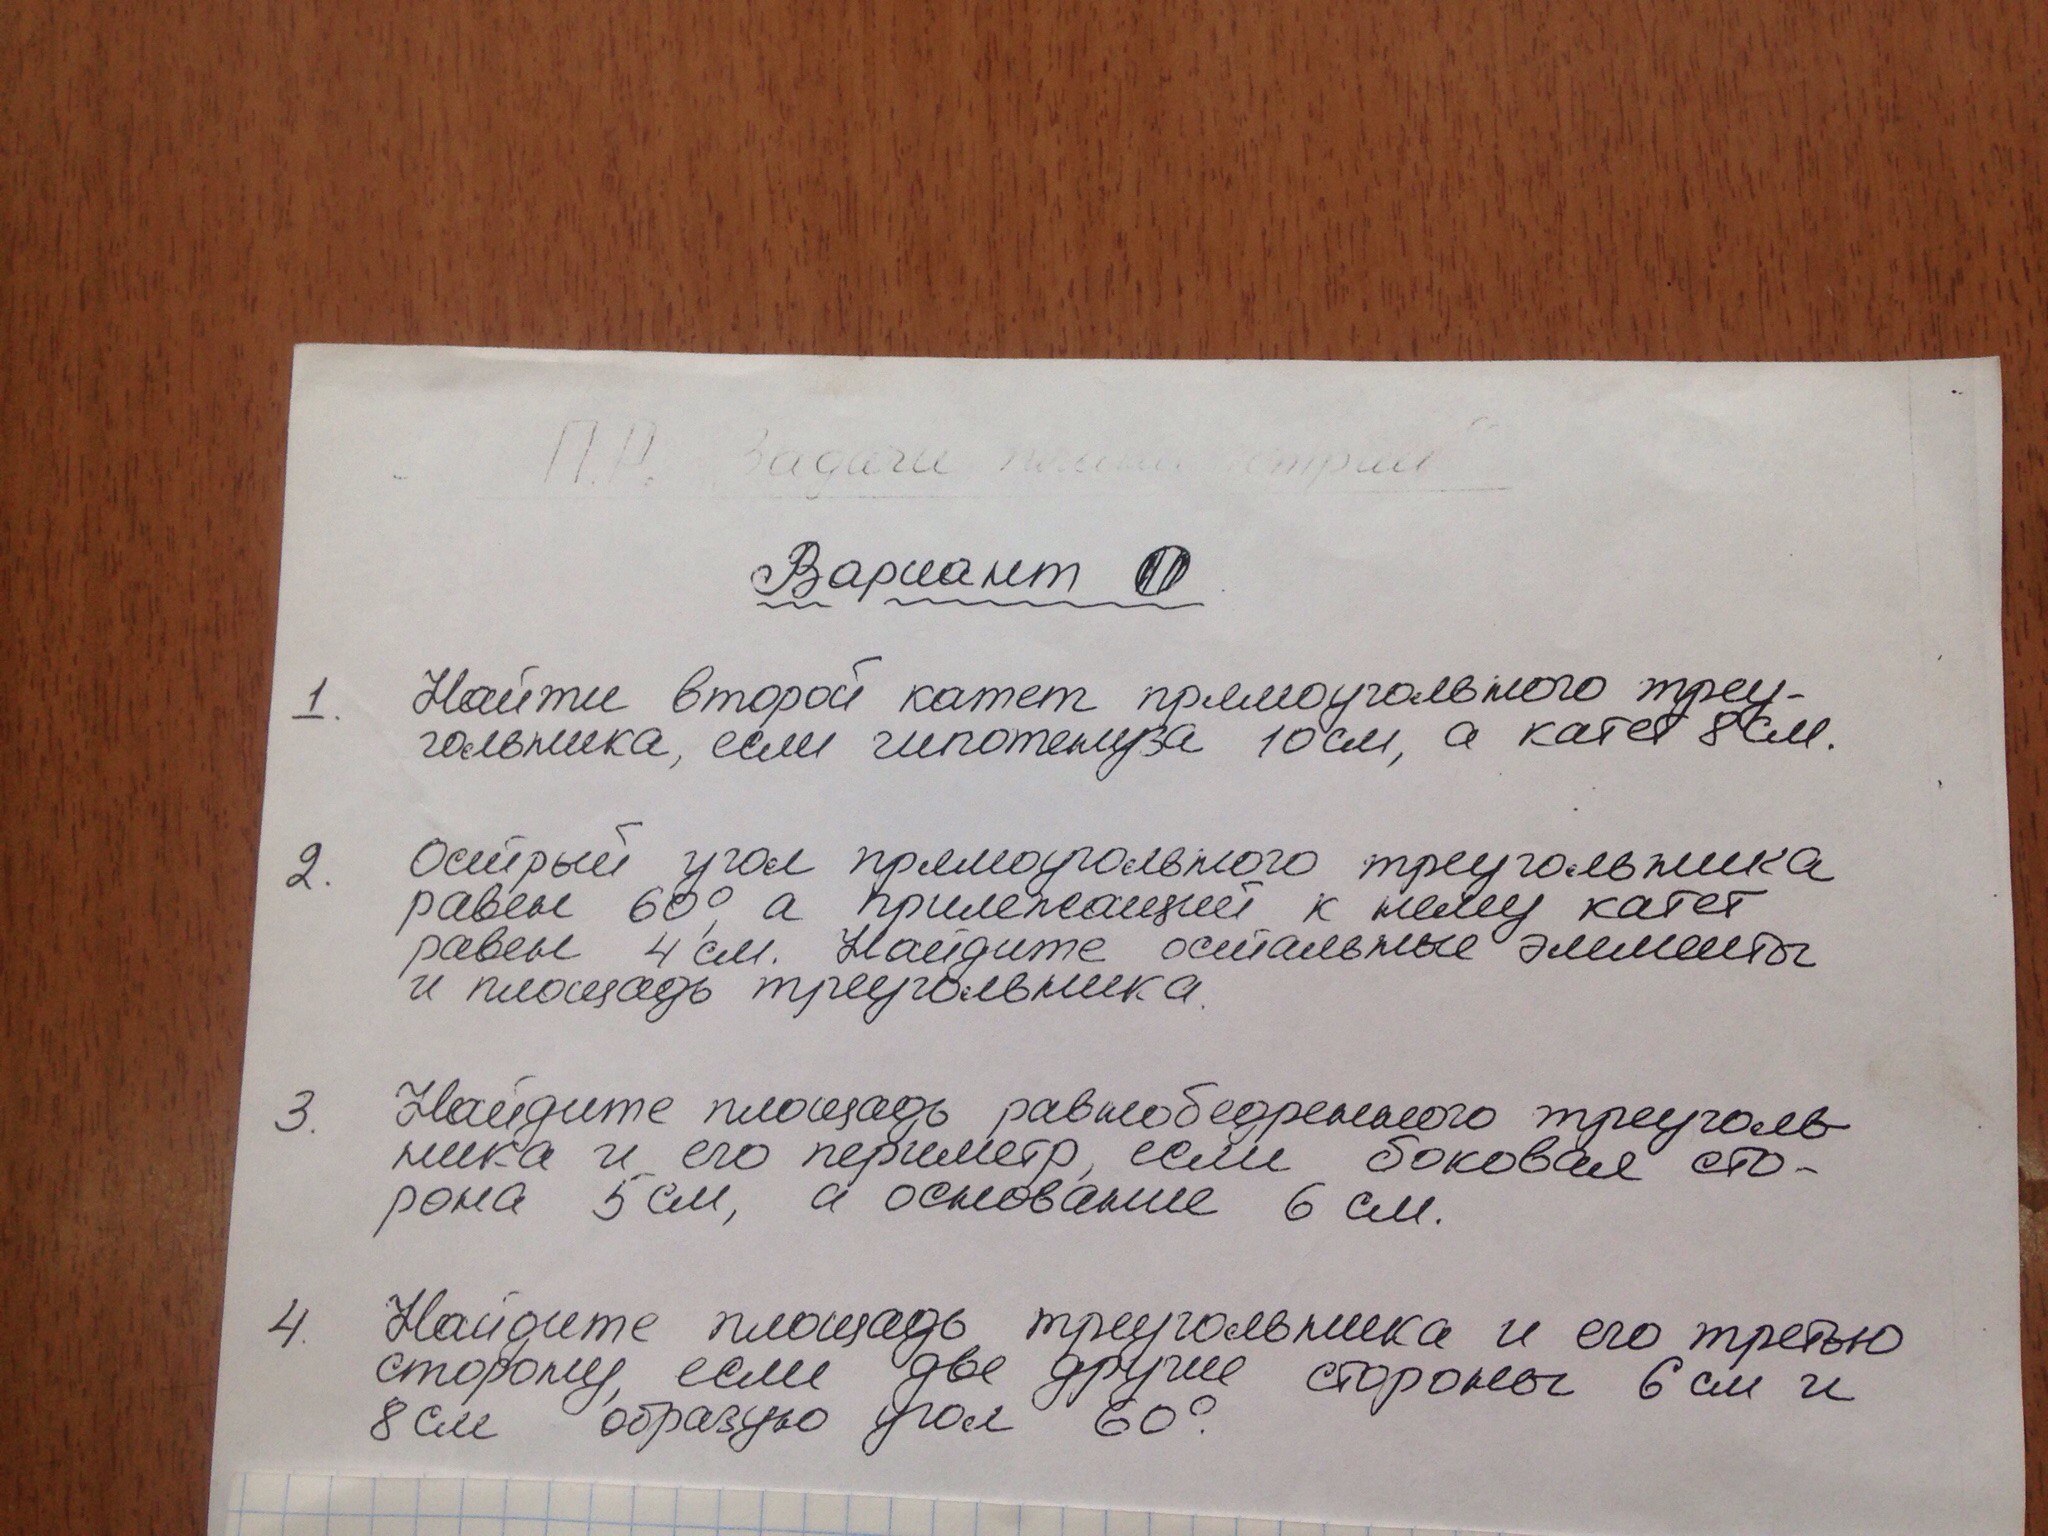 П.Р. "Задачи
Вариант
1. Найти второй катет прямоугольного треу-
гольника, если гипотенуза 10 см, а катет 8 см.
2. Острый угол прямоугольного треугольника
равен 60°, а прилежащий к нему катет
равен 4 см. Найдите остальные элементы
и площадь треугольника.
3. Найдите площадь равнобедренного треуголь
ника и его периметр, если боковая сто-
рона 5 см, а основание 6 см.
4. Найдите площадь треугольника и его третью
сторону, если две другие стороны 6 см и
8 см образую угол 60°.